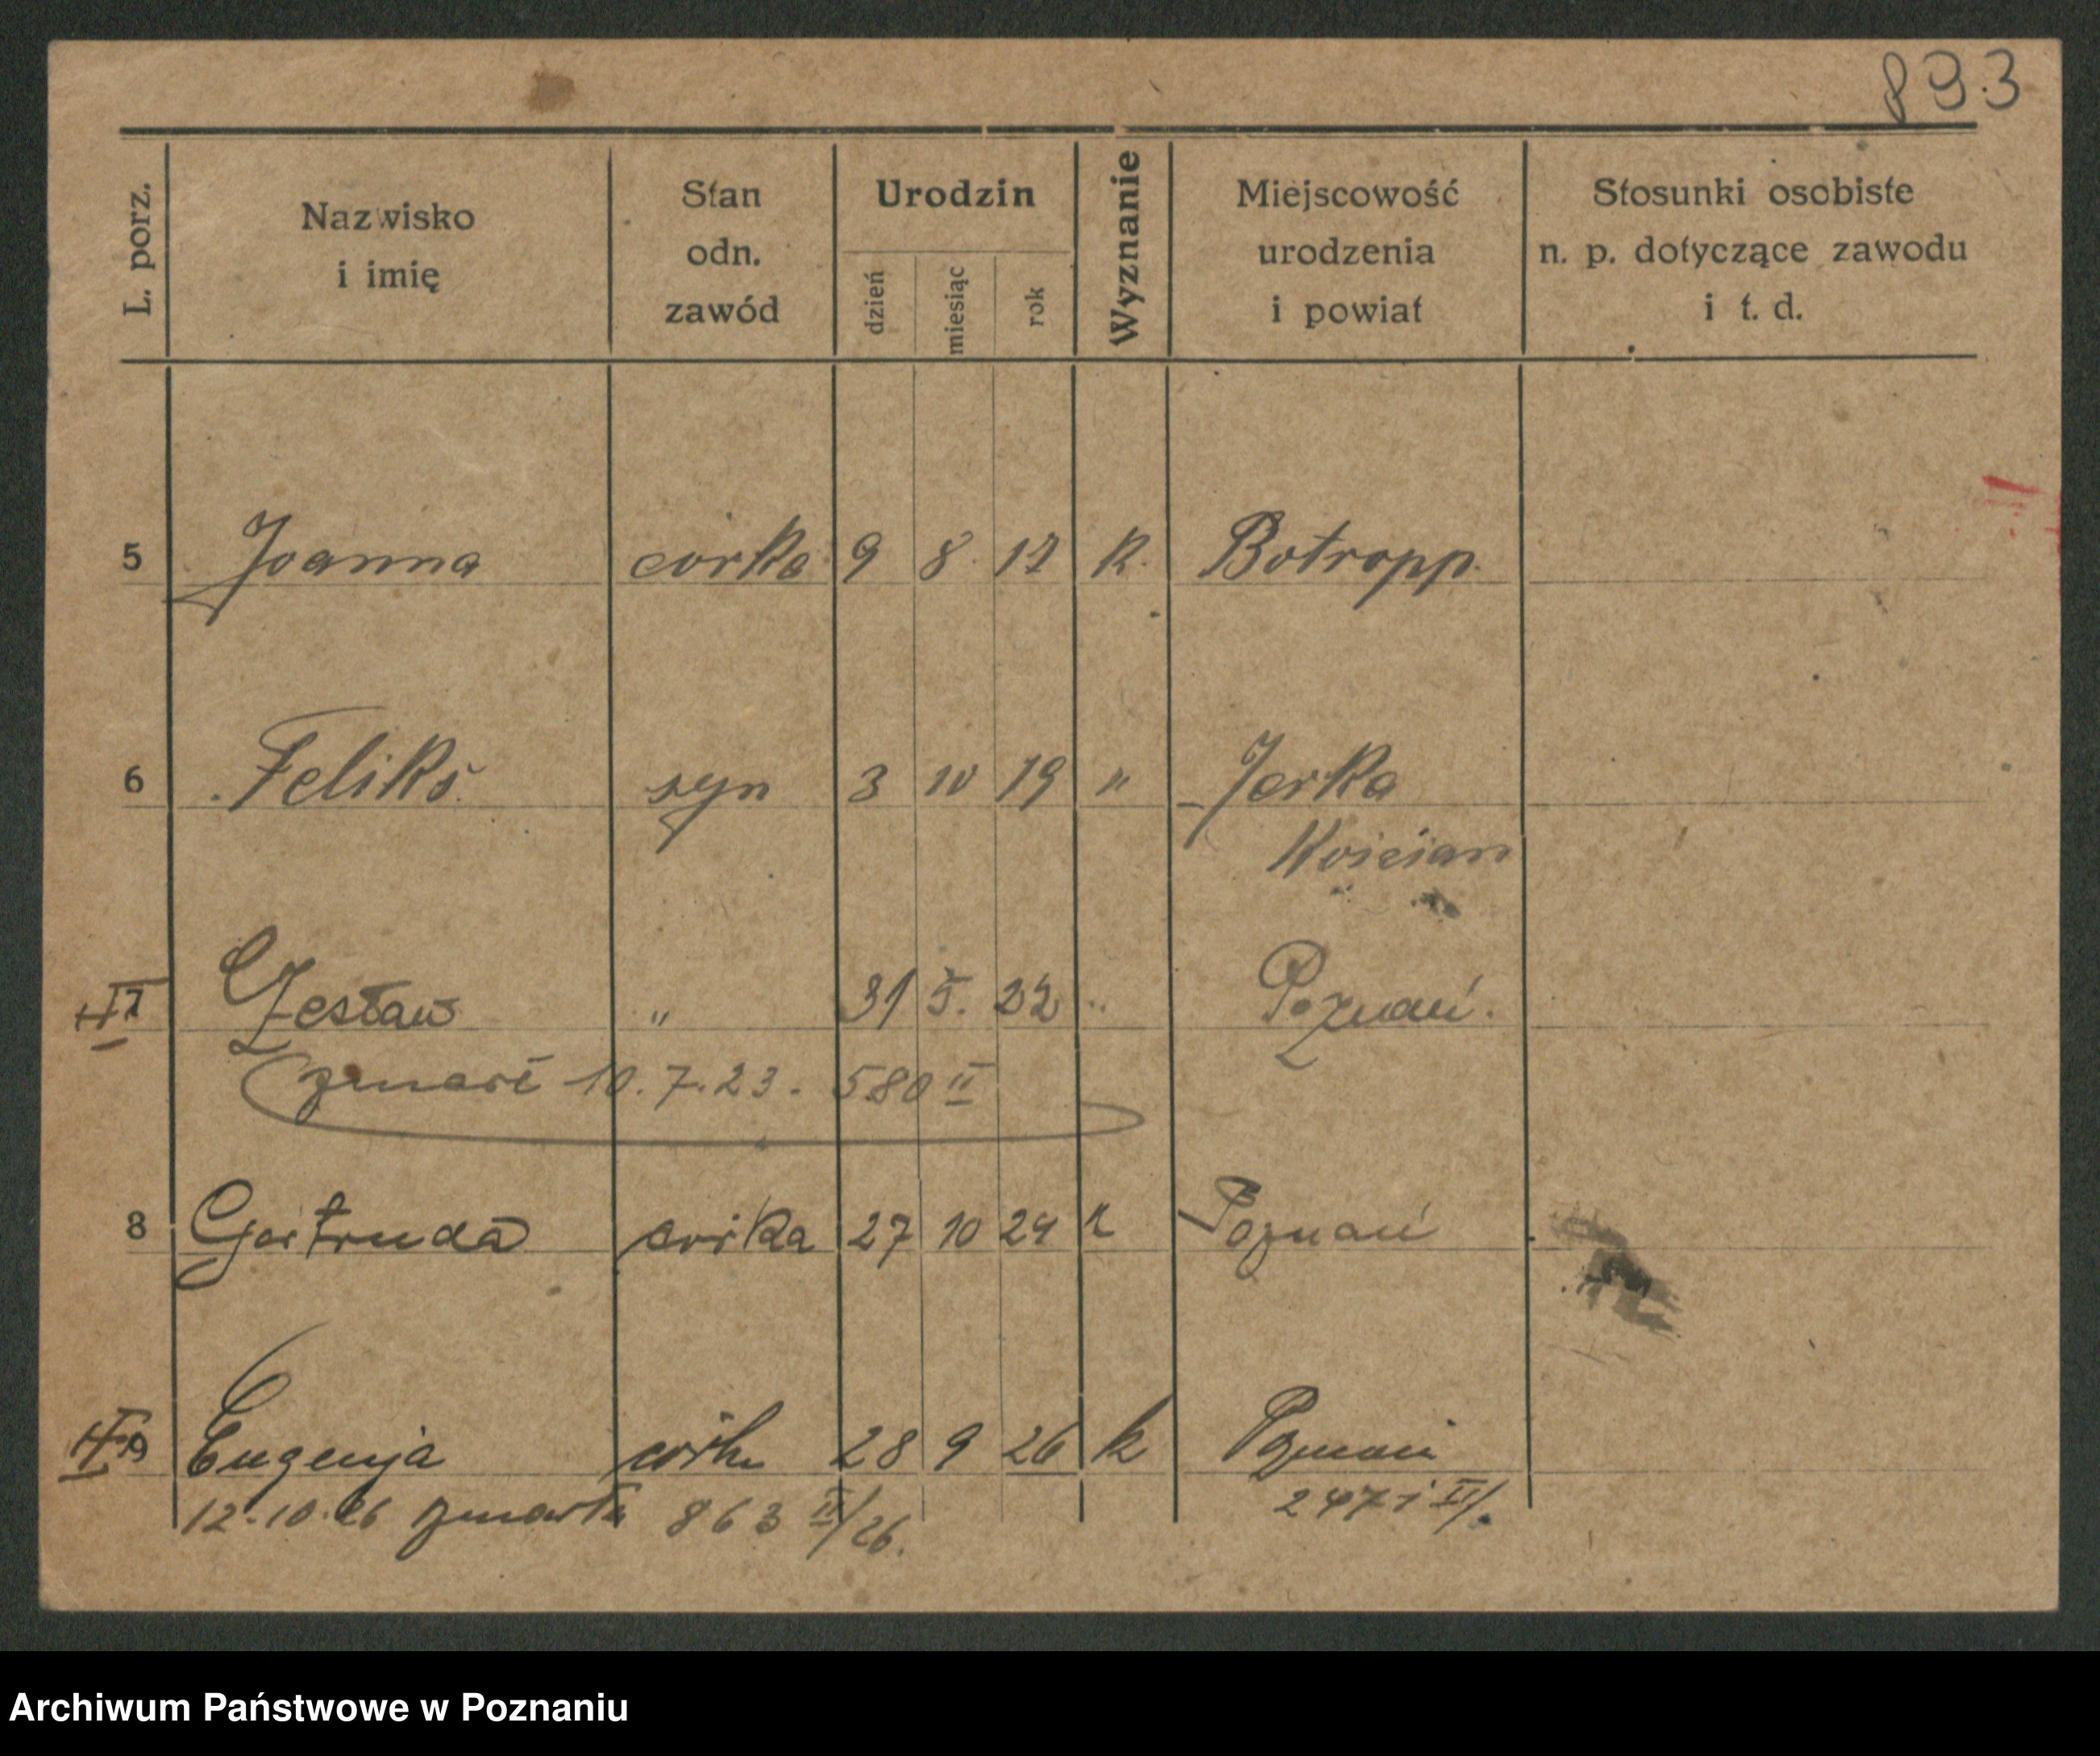 893
L. porz.
Nazwisko
i imię
Stan
odn.
zawód
Urodzin
dzień
miesiąc
rok
Wyznanie
Miejscowość
urodzenia
i powiat
Stosunki osobiste
n. p. dotyczące zawodu
i t. d.
5 Joanna córka 9 8 12 k. Botropp.
6 Feliks syn 3 10 19 " Jerka
Kościan
7 Czesław " 31 5. 22 " Poznań.
zmarł 10.7.23. 580 II
8 Gertruda córka 27 10 24 k Poznań
9 Eugenja córka 28 9 26 k Poznań
12.10.26 zmarła 863 II/26. 2471 II/.
Archiwum Państwowe w Poznaniu